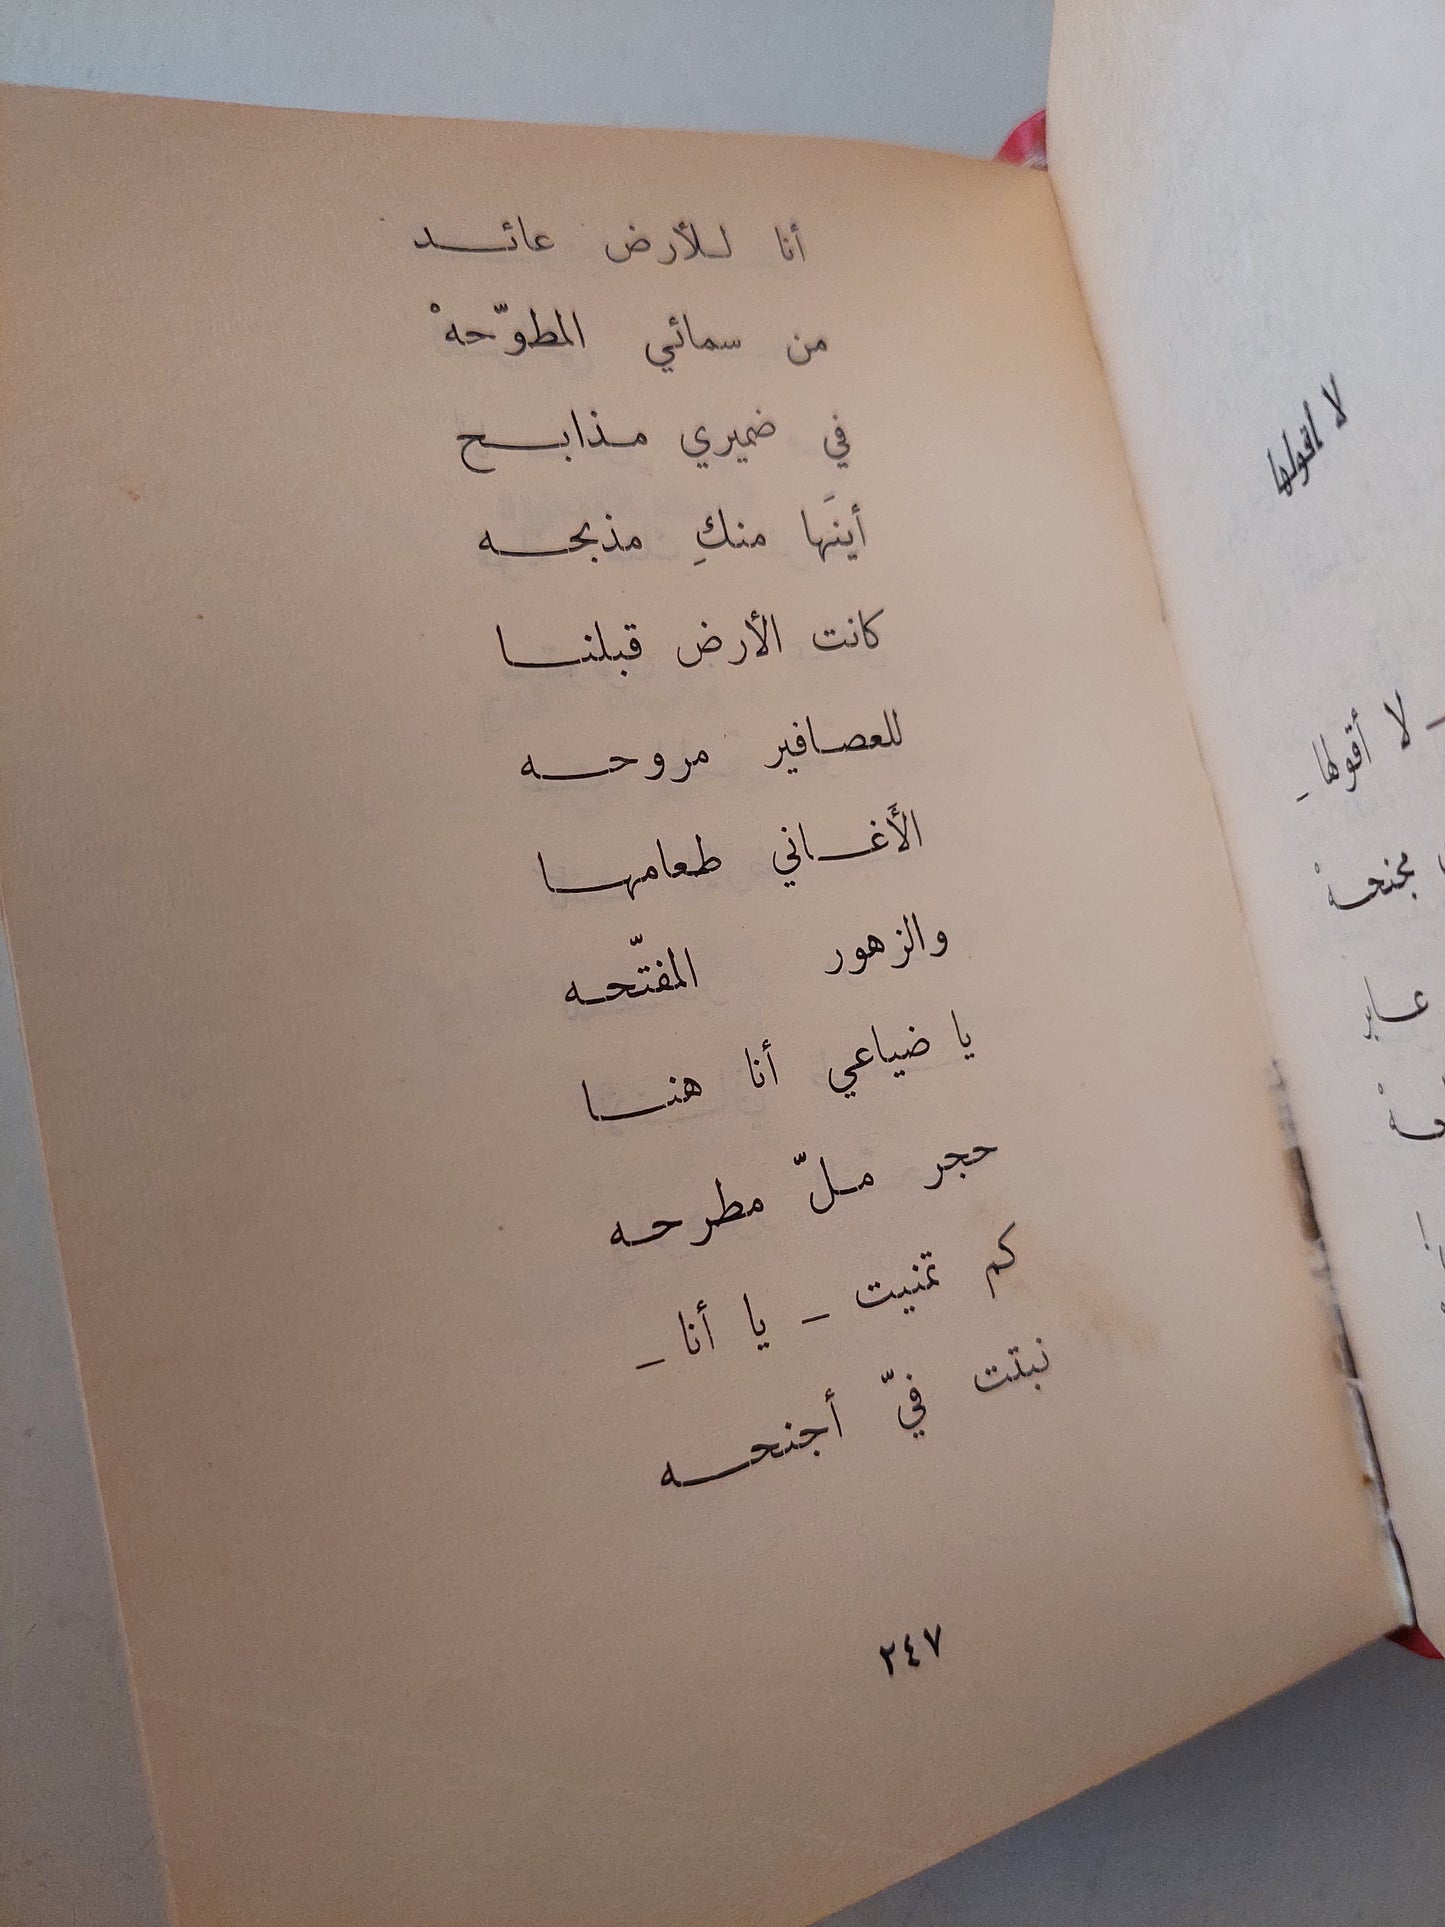 لا أقولها
لا أقولها -
مجنحهْ
عابر
أنا للأرض عائد
من سمائي المطوّحهْ
في ضميري مذابح
أينَها منكِ مذبحه
كانت الأرض قبلنا
للعصافير مروحه
الأَغاني طعامها
والزهور المفتّحه
يا ضياعي أنا هنا
حجر ملّ مطرحه
كم تمنيت - يا أنا -
نبتت فيّ أجنحه
٢٤٧